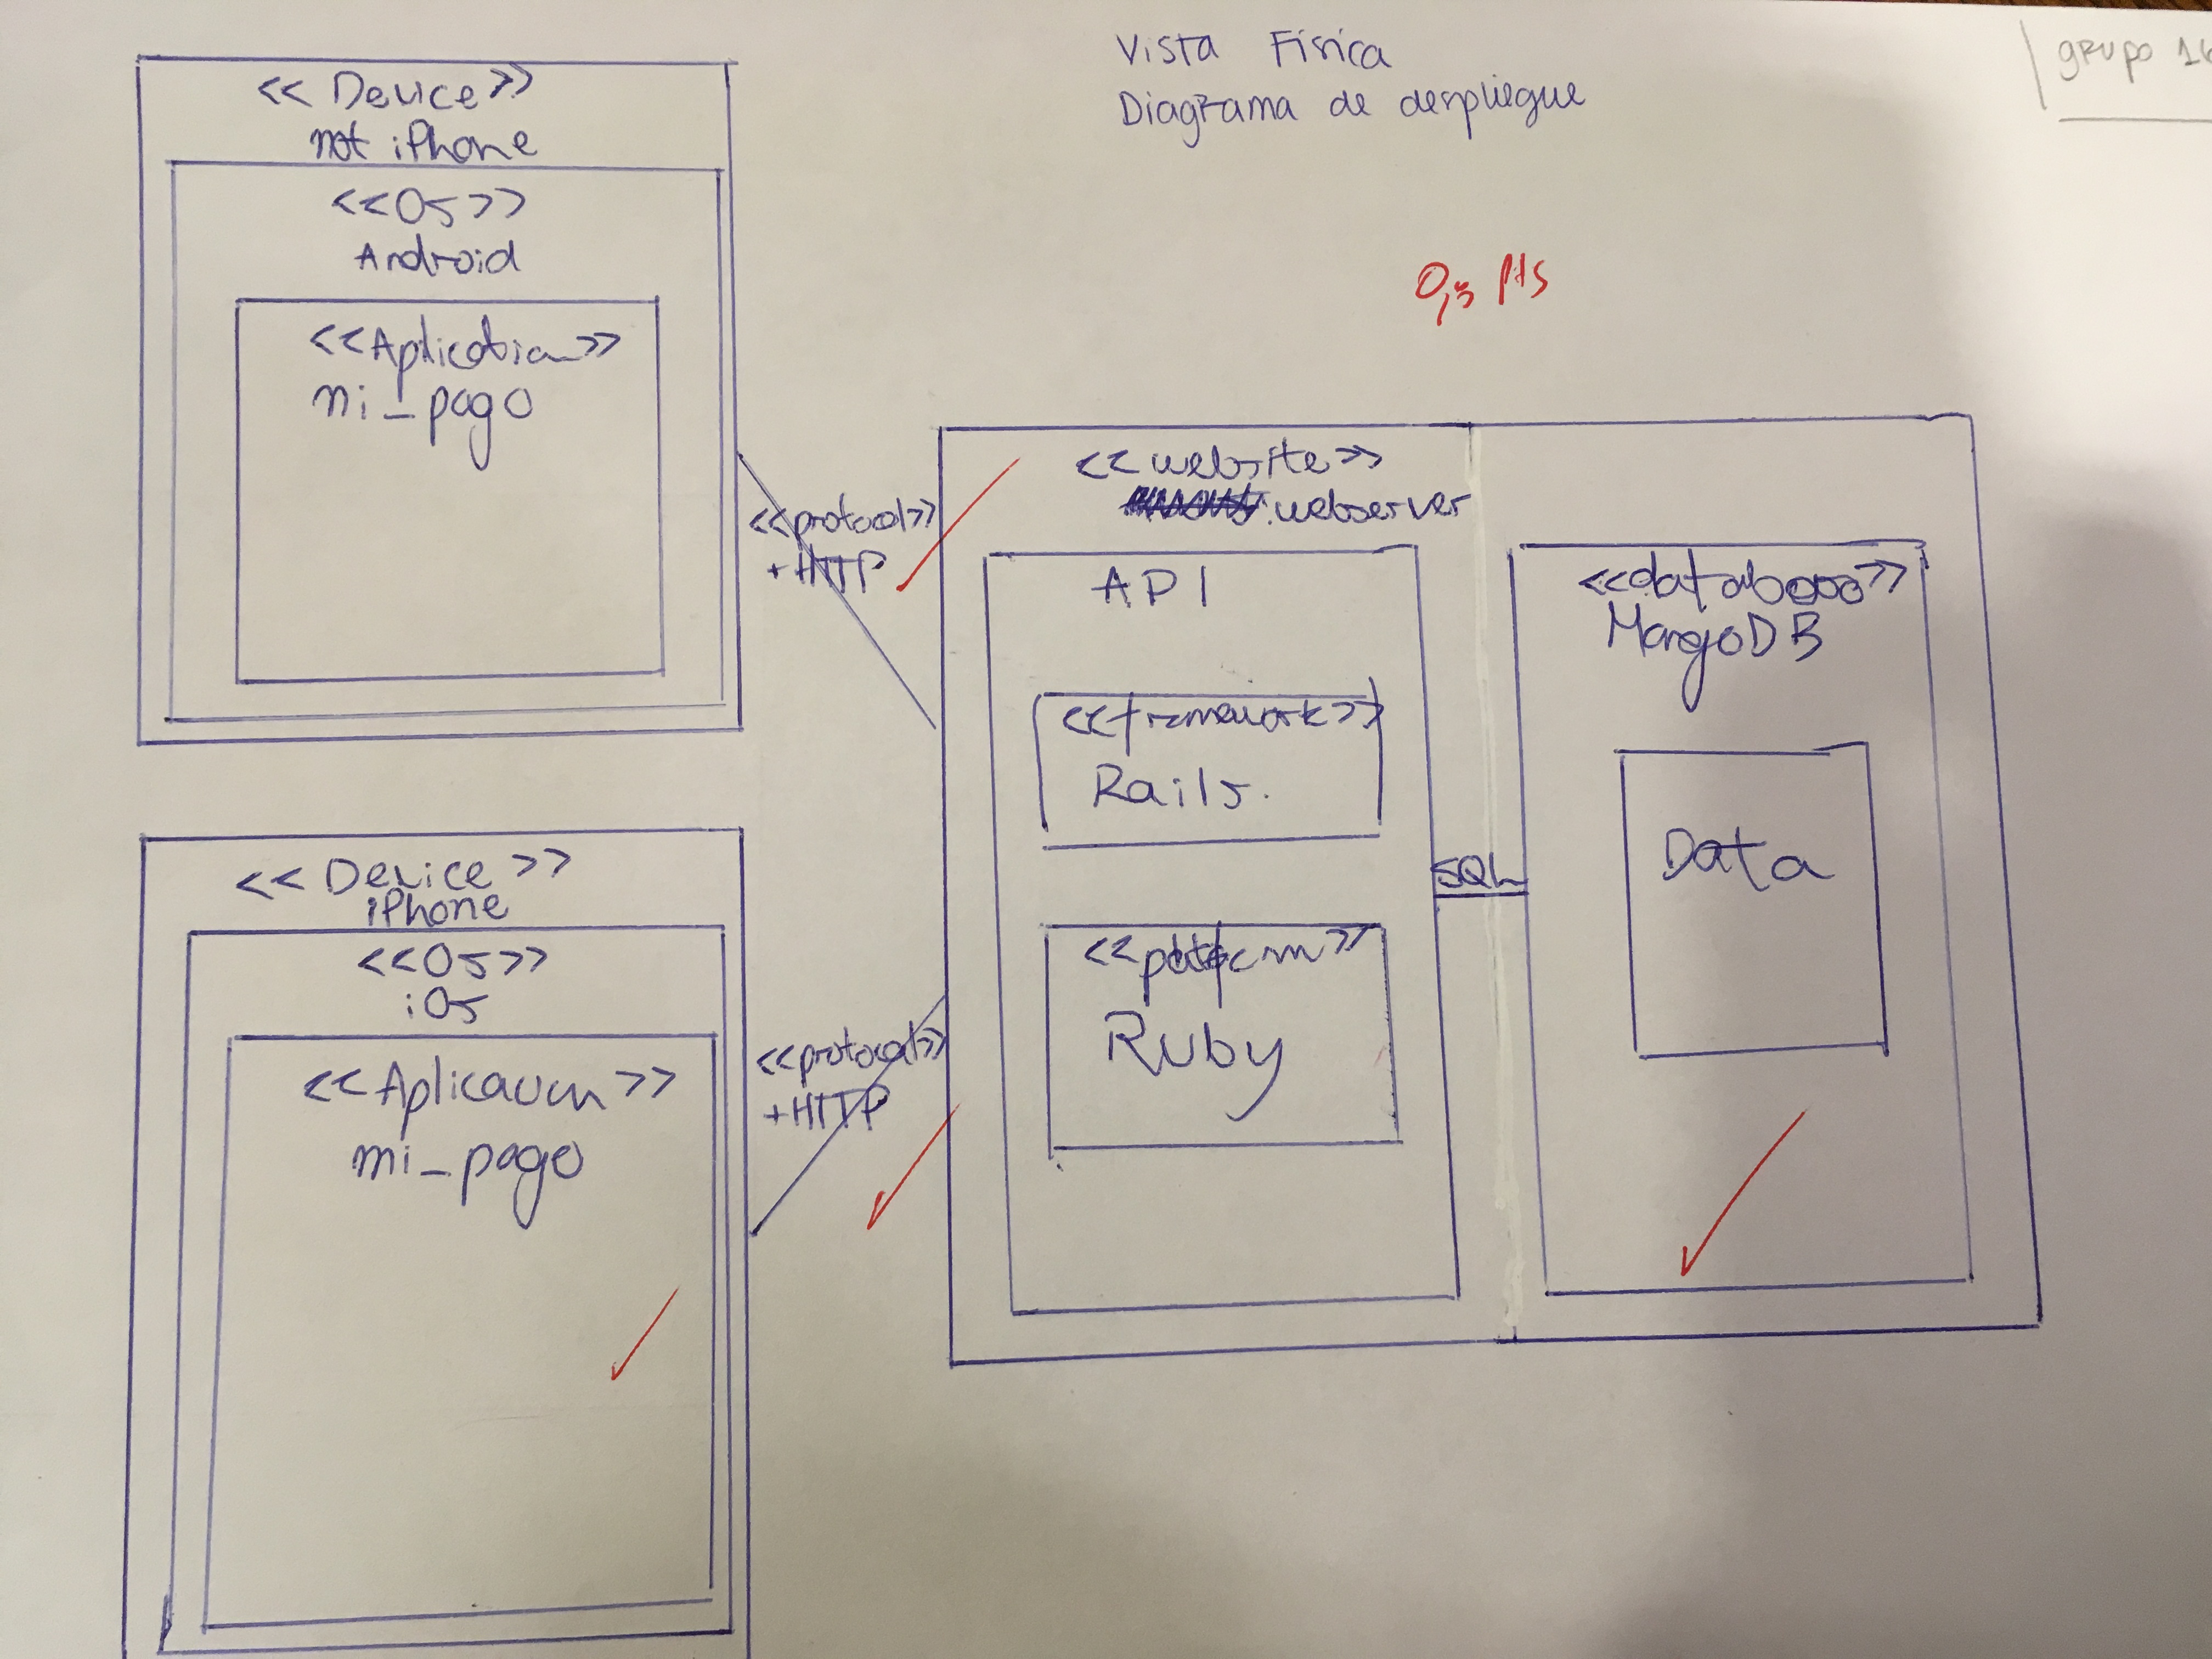 grupo 14
Vista Física
Diagrama de despliegue
0,5 Ms
<<Device>>
not iPhone
<<OS>>
Android
<<Aplicación>>
mi_pago
<<protocol>>
+HTTP
<<Device>>
iPhone
<<OS>>
iOS
<<Aplicacion>>
mi_pago
<<protocol>>
+HTTP
<<website>>
:webserver
API
<<framework>>
Rails
<<platform>>
Ruby
SQL
<<database>>
MongoDB
Data